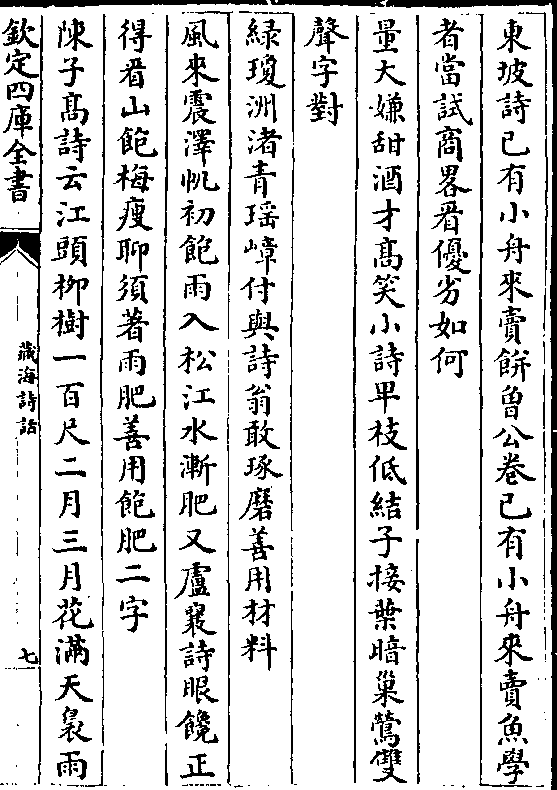 東坡詩已有小舟來賣餅曾公卷已有小舟來賣魚學
者當試商畧㸔優劣如何
量大嫌甜酒才髙笑小詩卑枝低結子接葉暗巢鶯雙
聲字對
緑瓊洲渚青瑶嶂付與詩翁敢琢磨善用材料
風來震澤帆初飽雨入松江水漸肥又盧襄詩眼饞正
得㸔山飽梅瘦聊須著雨肥善用飽肥二字
陳子髙詩云江頭栁樹一百尺二月三月花滿天裊雨
欽定四庫全書
藏海詩話
七